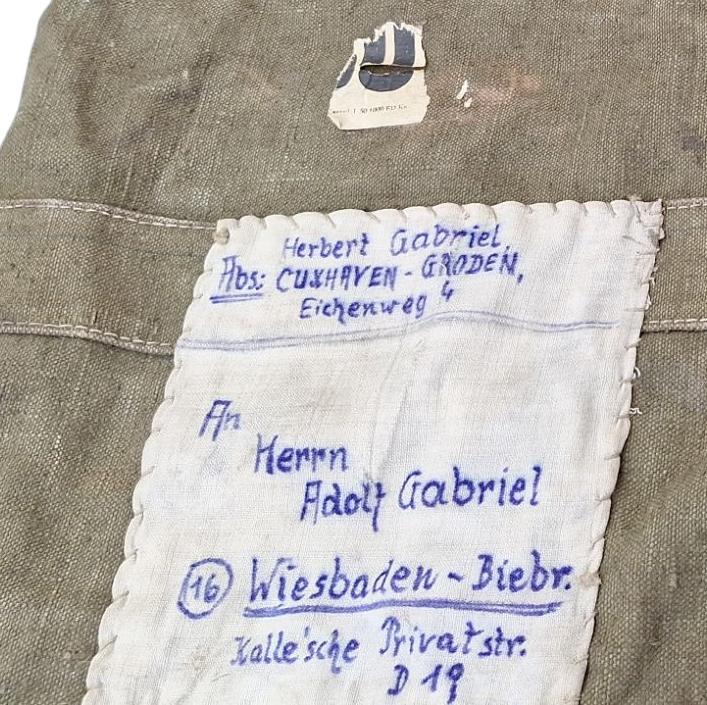 Herbert Gabriel,
Abs: CUXHAVEN - GRODEN,
Eichenweg 4
An
Herrn
Adolf Gabriel
(16) Wiesbaden - Biebr.
Kalle'sche Privatstr.
D 19